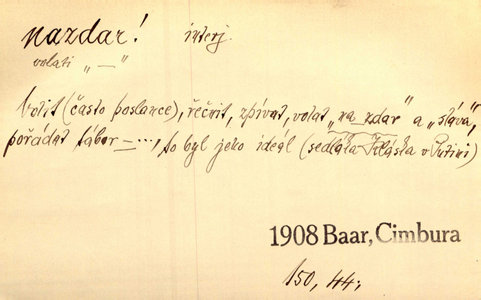 nazdar! interj.
volati „—"
Volit (často poslance), řečnit, zpívat, volat „na zdar" a „sláva",
pořádat tábor — ..., to byl jeho ideál (sedláka v Putimi)
1908 Baar, Cimbura
150, 44;